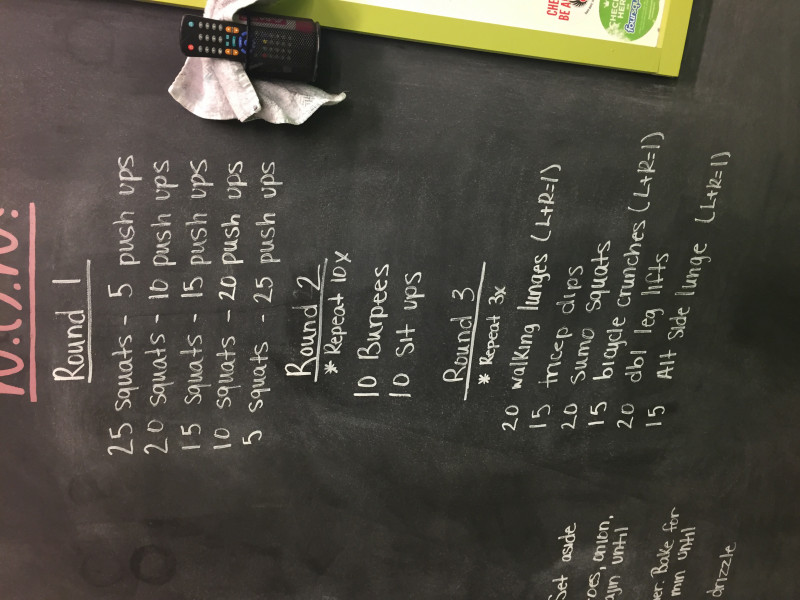 Round 1
25 squats - 5 push ups
20 squats - 10 push ups
15 squats - 15 push ups
10 squats - 20 push ups
5 squats - 25 push ups
Round 2
* Repeat 10x
10 Burpees
10 Sit ups
Round 3
* Repeat 3x
20 walking lunges (L+R=1)
15 tricep dips
20 sumo squats
15 bicycle crunches (L+R=1)
20 dbl leg lifts
15 Alt side lunge (L+R=1)
Set aside
onion,
until
Bake for
min until
drizzle